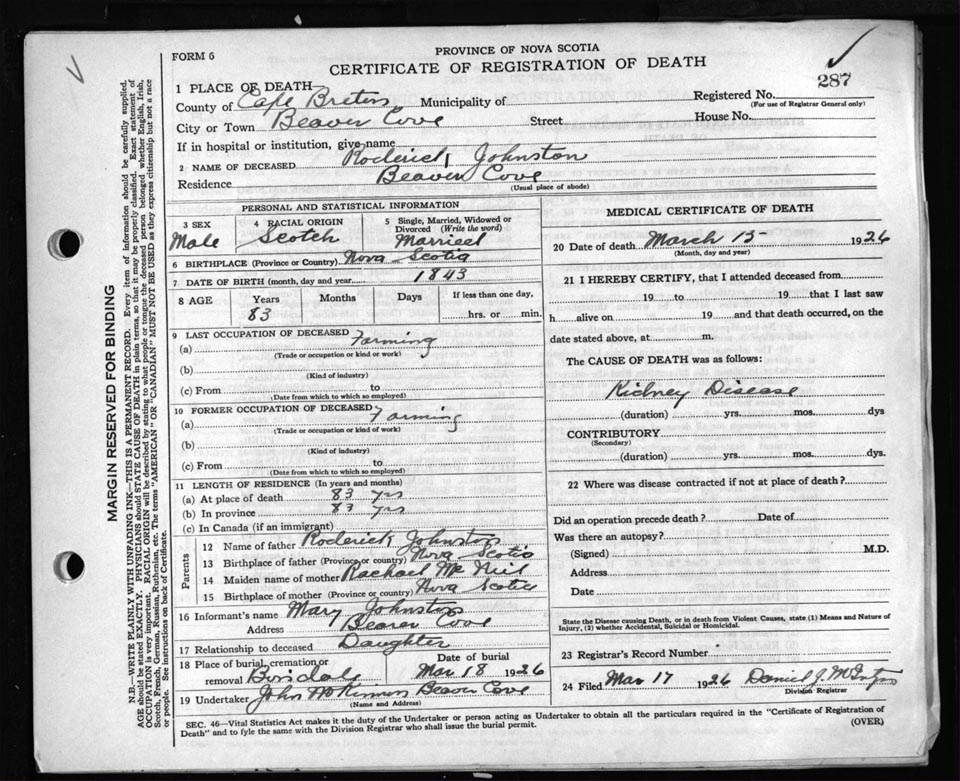 FORM 6
PROVINCE OF NOVA SCOTIA
CERTIFICATE OF REGISTRATION OF DEATH
287
1 PLACE OF DEATH
County of Cape Breton Municipality of
Registered No.
(For use of Registrar General only)
City or Town Beaver Cove Street
House No.
If in hospital or institution, give name
2 NAME OF DECEASED Roderick Johnston
Residence Beaver Cove
(Usual place of abode)
PERSONAL AND STATISTICAL INFORMATION
3 SEX
Male
4 RACIAL ORIGIN
Scotch
5 Single, Married, Widowed or
Divorced (Write the word)
Married
6 BIRTHPLACE (Province or Country) Nova Scotia
7 DATE OF BIRTH (month, day and year) 1843
8 AGE
Years Months Days If less than one day,
83 hrs. or min.
9 LAST OCCUPATION OF DECEASED
(a) Farming
(Trade or occupation or kind or work)
(b)
(Kind of industry)
(c) From to
(Date from which to which so employed)
10 FORMER OCCUPATION OF DECEASED
(a) Farming
(Trade or occupation or kind of work)
(b)
(Kind of industry)
(c) From to
(Date from which to which so employed)
11 LENGTH OF RESIDENCE (In years and months)
(a) At place of death 83 yrs
(b) In province 83 yrs
(c) In Canada (if an immigrant)
Parents
12 Name of father Roderick Johnston
13 Birthplace of father (Province or country) Nova Scotia
14 Maiden name of mother Rachael Mc Neil
15 Birthplace of mother (Province or country) Nova Scotia
16 Informant's name Mary Johnston
Address Beaver Cove
17 Relationship to deceased Daughter
18 Place of burial, cremation or Date of burial
removal Mar 18 1926
19 Undertaker John Beaver Cove
(Name and Address)
MEDICAL CERTIFICATE OF DEATH
20 Date of death March 15 1926
(Month, day and year)
21 I HEREBY CERTIFY, that I attended deceased from
19 to 19 that I last saw
h alive on 19 and that death occurred, on the
date stated above, at m.
The CAUSE OF DEATH was as follows:
Kidney Disease
(duration) yrs. mos. dys
CONTRIBUTORY
(Secondary)
(duration) yrs. mos. dys.
22 Where was disease contracted if not at place of death?
Did an operation precede death? Date of
Was there an autopsy?
(Signed) M.D.
Address
Date
State the Disease causing Death, or in death from Violent Causes, state (1) Means and Nature of
Injury, (2) whether Accidental, Suicidal or Homicidal.
23 Registrar's Record Number
24 Filed Mar 17 1926 Daniel J.
Division Registrar
SEC. 46—Vital Statistics Act makes it the duty of the Undertaker or person acting as Undertaker to obtain all the particulars required in the "Certificate of Registration of
Death" and to fyle the same with the Division Registrar who shall issue the burial permit.
(OVER)
MARGIN RESERVED FOR BINDING
N.B.—WRITE PLAINLY WITH UNFADING INK—THIS IS A PERMANENT RECORD. Every item of information should be carefully supplied.
AGE should be stated EXACTLY. PHYSICIANS should STATE CAUSE OF DEATH in plain terms, so that it may be properly classified. Exact statement of
OCCUPATION is very important. RACIAL ORIGIN will be described by stating to what people or tongue the deceased person belonged whether English, Irish,
Scotch, French, German, Russian, Ruthenian, etc. The terms "AMERICAN" OR "CANADIAN" MUST NOT BE USED as they express citizenship but not a race
or people. See instructions on back of Certificate.